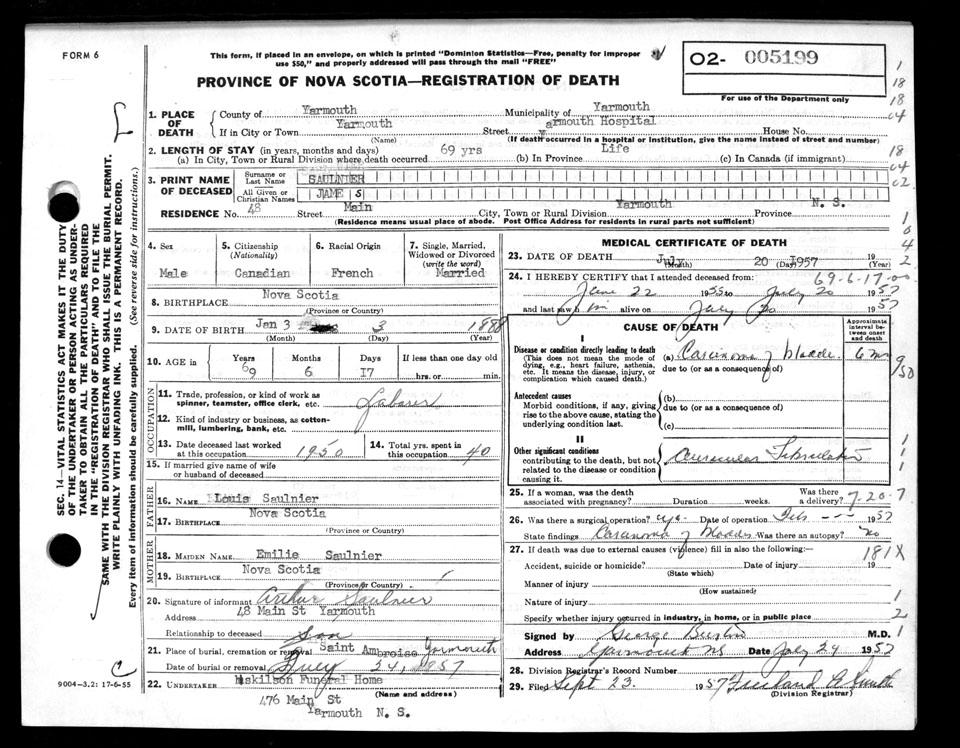 FORM 6
This form, if placed in an envelope, on which is printed "Dominion Statistics—Free, penalty for improper
use $50," and properly addressed will pass through the mail "FREE"
PROVINCE OF NOVA SCOTIA—REGISTRATION OF DEATH
O2- 005199
For use of the Department only
1. PLACE OF DEATH
County of Yarmouth Municipality of Yarmouth
If in City or Town Yarmouth Street armouth Hospital House No.
(Name) (If death occurred in a hospital or institution, give the name instead of street and number)
2. LENGTH OF STAY (in years, months and days)
(a) In City, Town or Rural Division where death occurred 69 yrs (b) In Province Life (c) In Canada (if immigrant)
3. PRINT NAME OF DECEASED
Surname or Last Name SAULNIER
All Given or Christian Names JAMES
RESIDENCE No. 48 Street Main City, Town or Rural Division Yarmouth Province N. S.
(Residence means usual place of abode. Post Office Address for residents in rural parts not sufficient)
4. Sex Male
5. Citizenship (Nationality) Canadian
6. Racial Origin French
7. Single, Married, Widowed or Divorced (write the word) Married
8. BIRTHPLACE Nova Scotia
(Province or Country)
9. DATE OF BIRTH Jan 3 3 1888
(Month) (Day) (Year)
10. AGE in Years 69 Months 6 Days 17 If less than one day old hrs. or min.
OCCUPATION
11. Trade, profession, or kind of work as spinner, teamster, office clerk, etc. Laborer
12. Kind of industry or business, as cotton-mill, lumbering, bank, etc.
13. Date deceased last worked at this occupation 1950
14. Total yrs. spent in this occupation 40
15. If married give name of wife or husband of deceased
FATHER
16. NAME Louis Saulnier
17. BIRTHPLACE Nova Scotia
(Province or Country)
MOTHER
18. MAIDEN NAME Emilie Saulnier
19. BIRTHPLACE Nova Scotia
(Province or Country)
20. Signature of informant Arthur Saulnier
Address 48 Main St Yarmouth
Relationship to deceased Son
21. Place of burial, cremation or removal Saint Ambroise Yarmouth
Date of burial or removal July 24, 1957
22. UNDERTAKER Huskilson Funeral Home
(Name and address)
476 Main St
Yarmouth N. S.
MEDICAL CERTIFICATE OF DEATH
23. DATE OF DEATH July 20 1957
(Month) (Day) (Year)
24. I HEREBY CERTIFY that I attended deceased from: 69-6-17-00
June 22 1955 to July 20 1957
and last saw him alive on July 20 1957
CAUSE OF DEATH
Approximate interval between onset and death
I
Disease or condition directly leading to death
(This does not mean the mode of dying, e.g., heart failure, asthenia, etc. It means the disease, injury, or complication which caused death.)
(a) Carcinoma of bladder
due to (or as a consequence of)
Antecedent causes
Morbid conditions, if any, giving rise to the above cause, stating the underlying condition last.
(b)
due to (or as a consequence of)
(c)
II
Other significant conditions
contributing to the death, but not related to the disease or condition causing it.
Auricular Fibrillation
25. If a woman, was the death associated with pregnancy? Duration weeks. Was there a delivery? 7-20-7
26. Was there a surgical operation? yes Date of operation Feb 1957
State findings Carcinoma of bladder Was there an autopsy? No
27. If death was due to external causes (violence) fill in also the following: 181X
Accident, suicide or homicide? Date of injury 19
(State which)
Manner of injury
(How sustained)
Nature of injury
Specify whether injury occurred in industry, in home, or in public place
Signed by George Burton M.D.
Address Yarmouth NS Date July 24 1957
28. Division Registrar's Record Number
29. Filed Sept 23. 1957
(Division Registrar)
SEC. 14—VITAL STATISTICS ACT MAKES IT THE DUTY
OF THE UNDERTAKER OR PERSON ACTING AS UNDER-
TAKER TO OBTAIN ALL THE PARTICULARS REQUIRED
IN THE "REGISTRATION OF DEATH" AND TO FILE THE
SAME WITH THE DIVISION REGISTRAR WHO SHALL ISSUE THE BURIAL PERMIT.
WRITE PLAINLY WITH UNFADING INK. THIS IS A PERMANENT RECORD.
Every item of information should be carefully supplied. (See reverse side for instructions.)
9004-3.2: 17-6-55